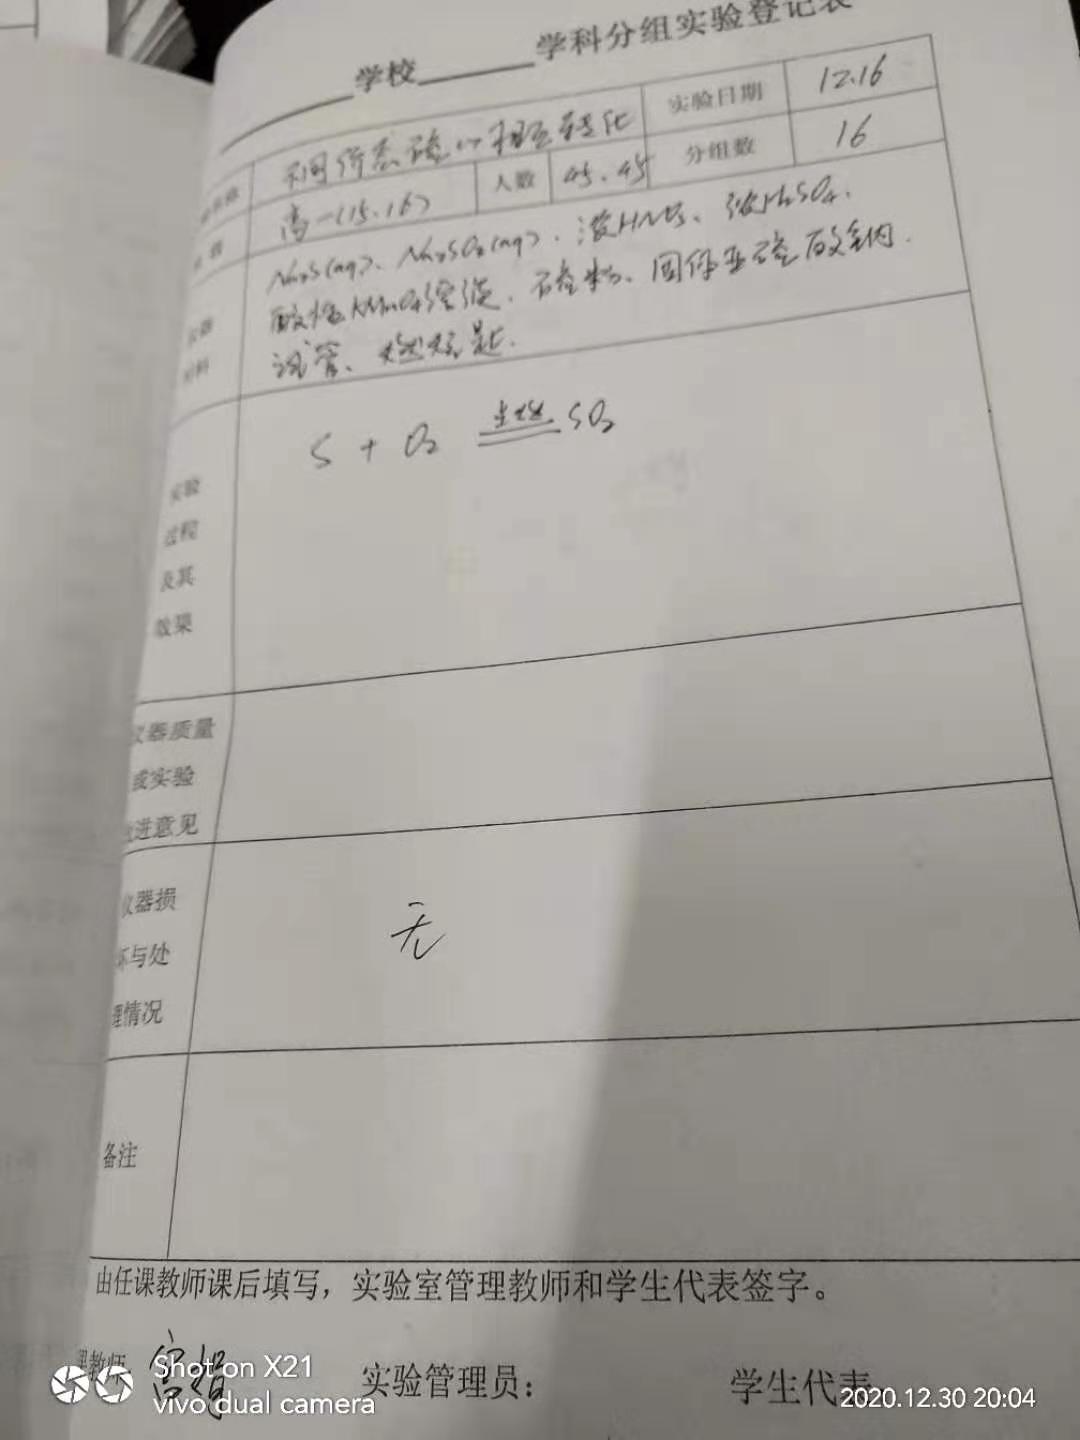 学校 学科分组实验登记表
不同价态硫的相互转化 实验日期 12.16
高一(15.16) 人数 45.45 分组数 16
Na₂S(aq)、Na₂SO₃(aq)、浓HNO₃、浓H₂SO₄、
酸性KMnO₄溶液、硫粉、固体亚硫酸钠.
试管、燃烧匙.
S + O₂ 点燃 SO₂
实验
过程
及其
效果
仪器质量
或实验
改进意见
仪器损
坏与处
理情况
无
备注
由任课教师课后填写，实验室管理教师和学生代表签字。
教师 实验管理员： 学生代表
Shot on X21
vivo dual camera
2020.12.30 20:04